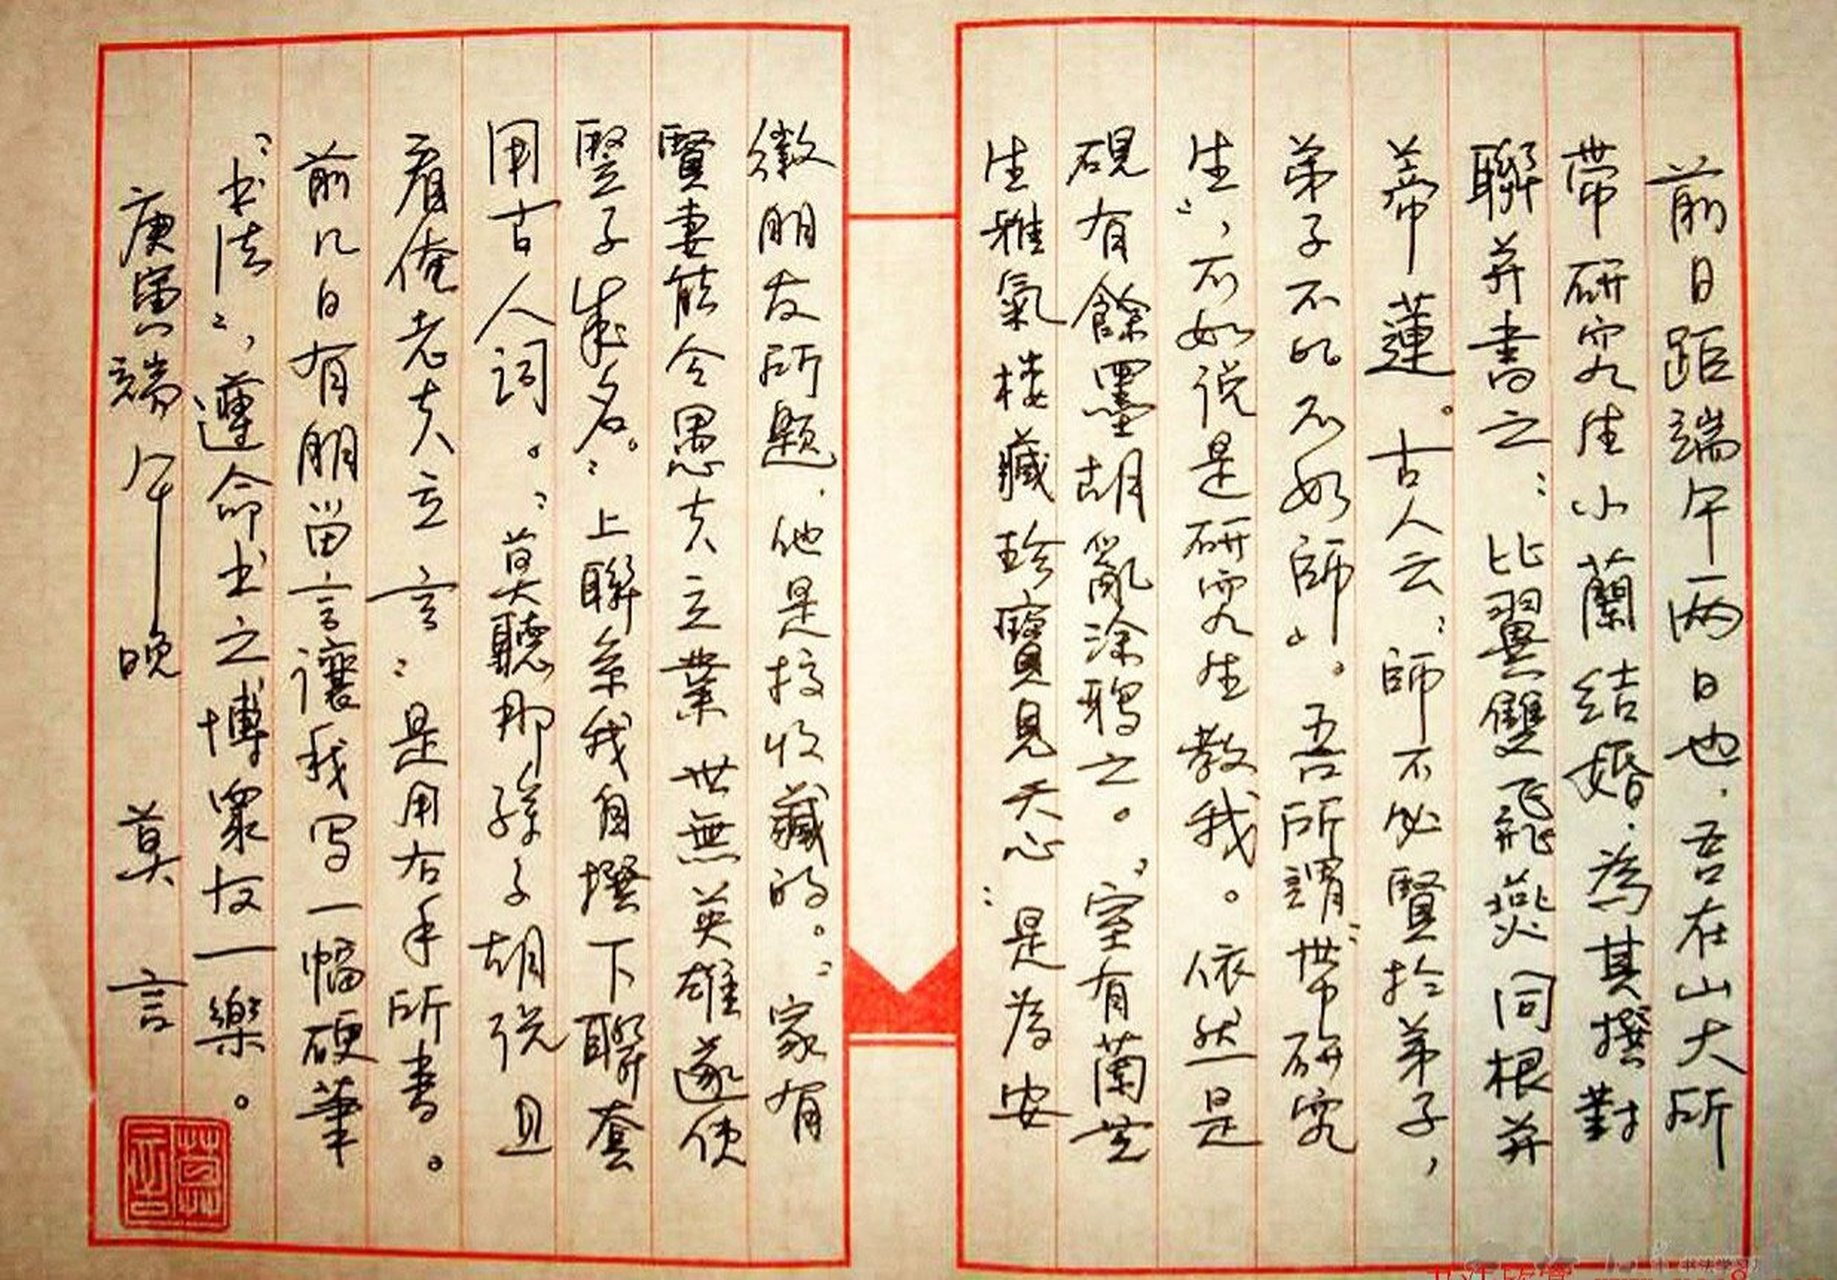 前日距端午一两日也.吾在山大所
带研究生小蘭结婚.為其撰對
聯并書之:比翼雙飛燕同根并
蒂蓮。古人云:師不必賢於弟子,
弟子不必不如師」。吾所謂“带研究
生”,不如说是研究生教我。依然是
硯有餘墨胡亂涂鴉之。“室有蘭芝
生雅氣楼藏珍寶見天心”是為安
徽朋友所题.他是搞收藏的。“家有
賢妻能令愚夫立業世無英雄遂使
豎子成名。”上聯系我自撰下聯套
用古人词。“莫聽那孫子胡说且
看俺老夫立言”是用右手所書。
前几日有朋留言讓我写一幅硬筆
“书法”,遵命书之博眾友一樂。
庚寅端午晚 莫言
莫言